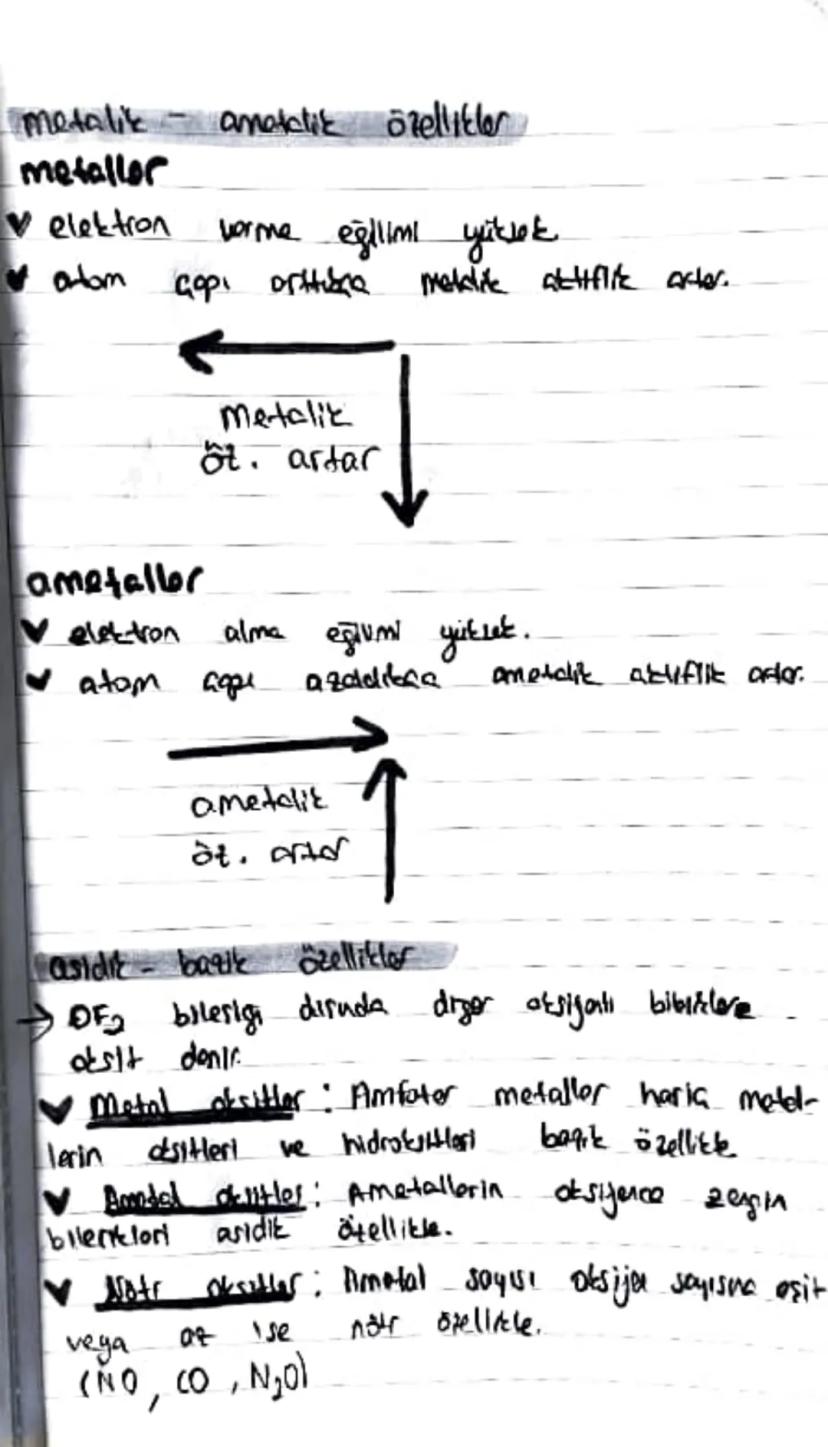 metalik - ametalik özellikler
metaller
elektron verme eğilimi yüksek
atom çapı arttıkça metalik aktiflik artar.
Metalik
öz. artar
ametaller
elektron alma eğilimi yüksek.
atom çapı azaldıkça ametalik aktiflik artar.
ametalik
öz. artar
asidik - bazik özellikler
→ OF2 bileşiği dışında diğer oksijenli bileşiklere
oksit denir.
Metal oksitler : Amfoter metaller hariç metal-
lerin oksitleri ve hidroksitleri bazik özellikte
Ametal oksitler : Ametallerin oksijence zengin
bileşikleri asidik özellikte.
Nötr oksitler : Ametal sayısı oksijen sayısına eşit
veya az ise nötr özellikte.
(NO, CO, N₂O)